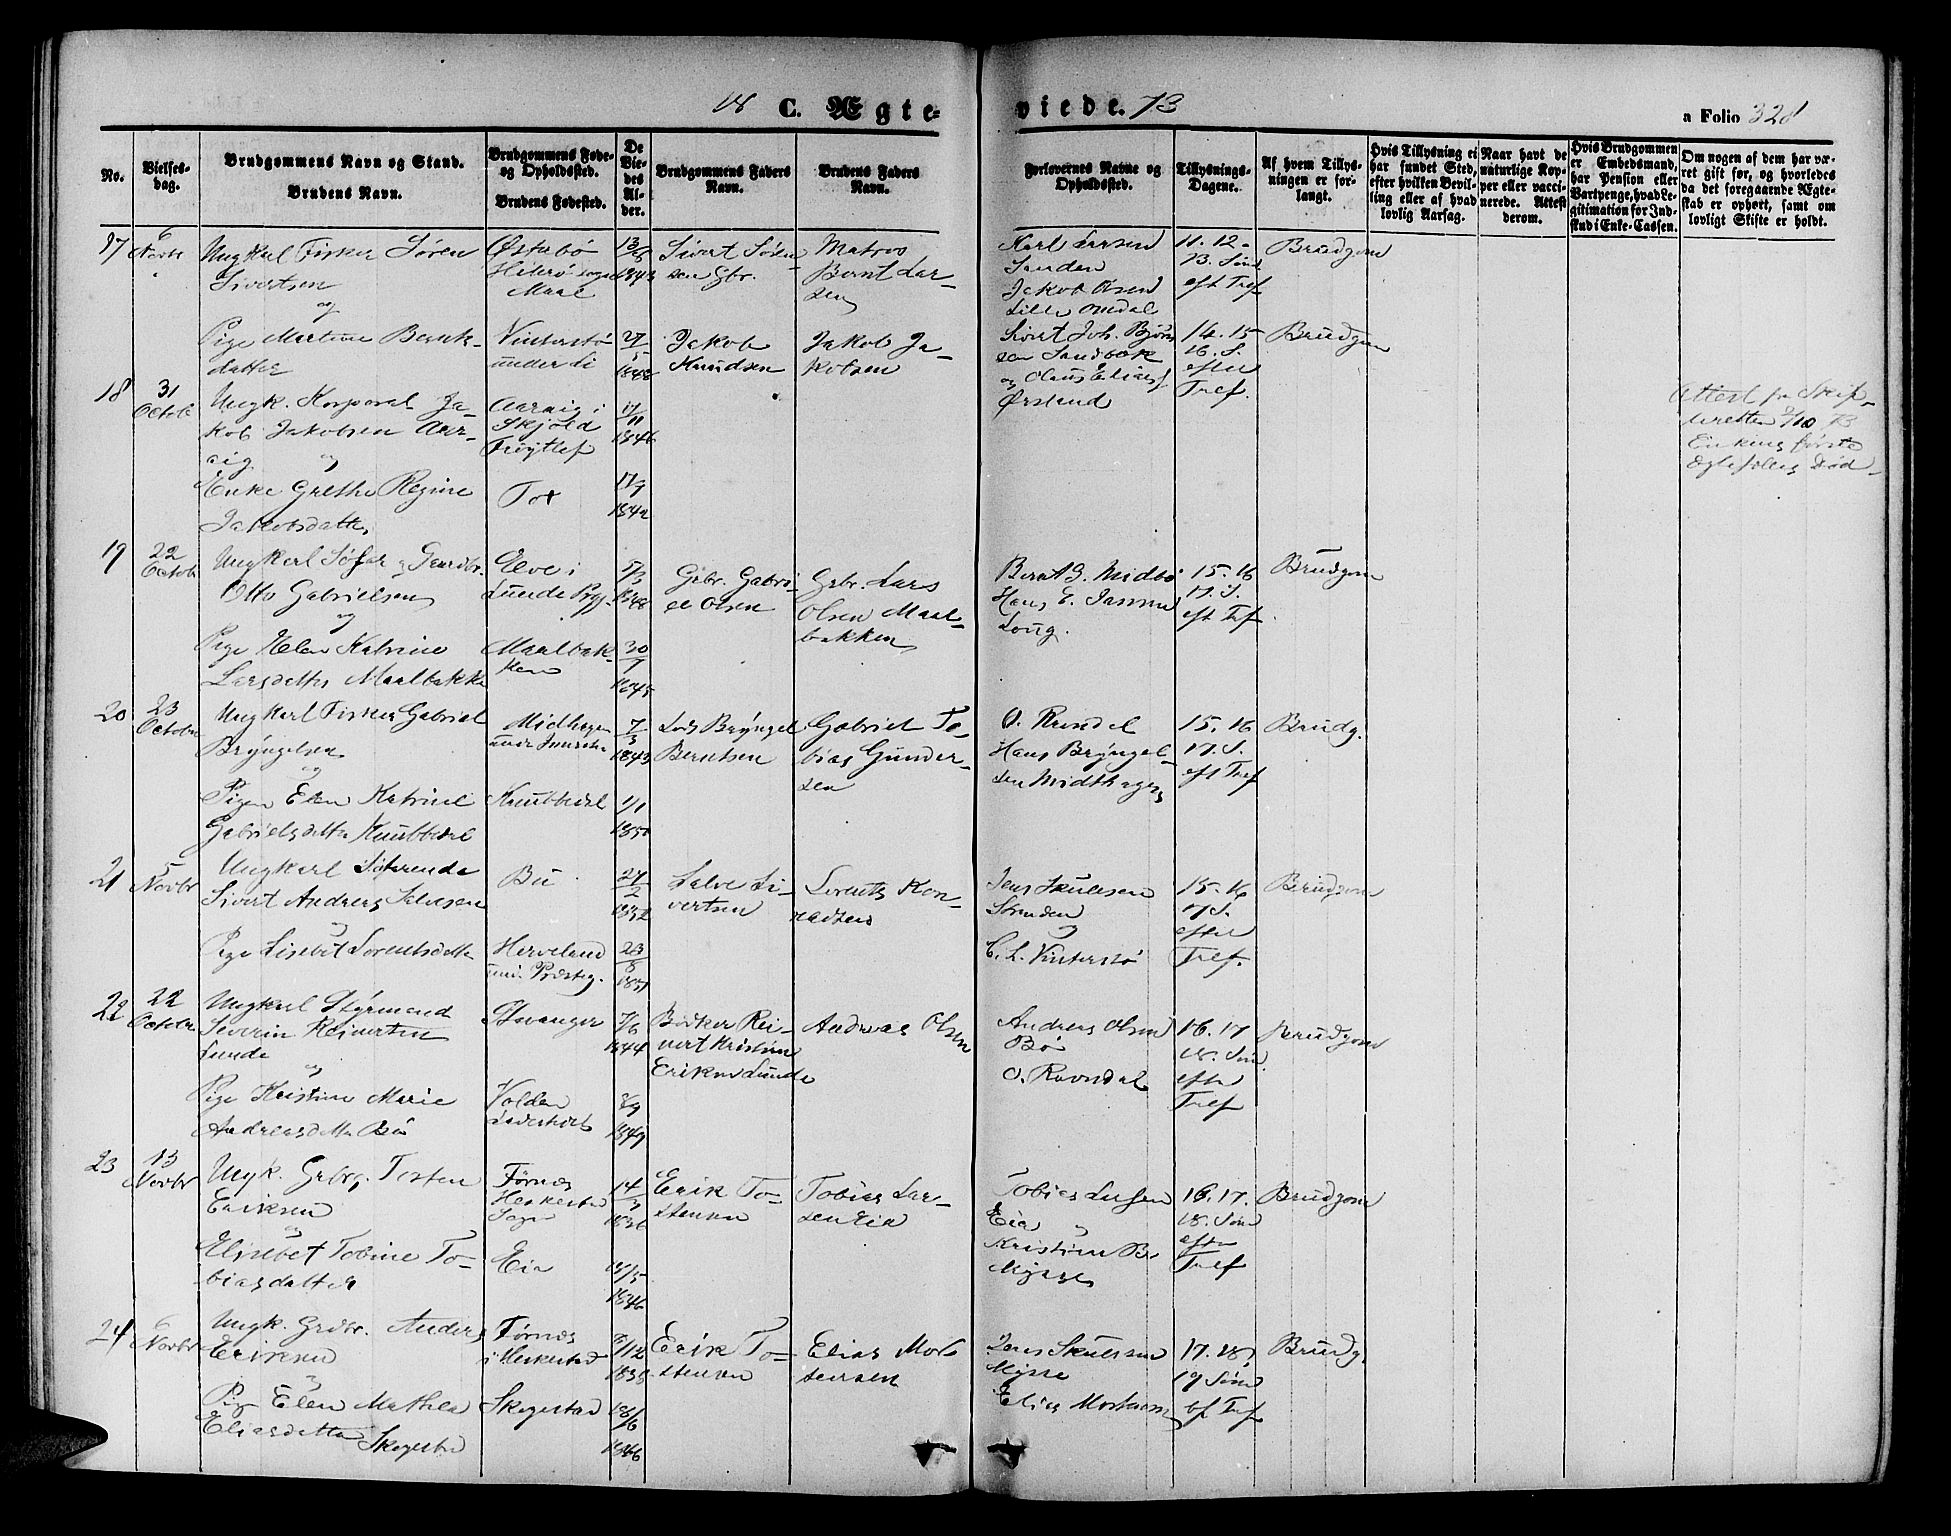 18 C. Ægte-
viede. 73
a Folio 328
No.
Vielses-
dag.
Brudgommens Navn og Stand.
Brudens Navn.
Brudgommens Føde-
og Opholdssted.
Brudens Fødested.
De
Vie-
des
Al-
der.
Brudgommens Faders
Navn.
Brudens Faders
Navn.
Forlovernes Navne og
Opholdssted.
Tillysnings-
Dagene.
Af hvem Tillys-
ningen er for-
langt.
Hvis Tillysning ei
har fundet Sted,
efter hvilken Bevil-
ling eller af hvad
lovlig Aarsag.
Naar havt de
naturlige Kop-
per eller vacci-
nerede. Attest
derom.
Hvis Brudgommen
er Embedsmand,
har Pension eller
Vartpenge, hvad Le-
gitimation for Ind-
skud i Enke-Cassen.
Om nogen af dem har væ-
ret gift før, og hvorledes
da det foregaaende Ægte-
skab er ophørt, samt om
lovligt Skifte er holdt.
17
6
Novbr
Ungkarl Fisker Søren
Sivertsen
og
Pige Martine Bernts-
datter
Østabø
Hitterø sogn
Vintersbø
under Li
13/8
1843
27/5
1848
Sivert Søren-
sen Gbr.
Jakob
Knudsen
Matros
Bernt Lar-
sen
Jakob Ja-
kobsen
Karl Larsen
Sanden
Jakob Olsen
Lille Omdal
Sivert Joh. Bjørn-
sen Sandbæk
og Claus Eliass
Ørsland
11. 12-
13. Sønd
eft Tref
14. 15
16. S.
efter
Tref.
Brudgom
Brudgom
18
31
Octob
Ungk. Korporal Ja-
kob Jakobsen Aar-
vig og
Enke Grethe Regine
Jakobsdatter
Aarvig i
Skjold
Tox
11
1846
17/9
1842
Attest fra Skif-
teretten 2/10 73
Enkens første
Ægtefælles Død
19
22
Octob
Ungkarl Søfar og Gaardbr.
Otto Gabrielsen
og
Pige Helen Katrine
Larsdatter Maalbakke
Eeve i
Lunde Præg.
Maalbak-
ken
5/3
1848
30/7
1845
Grbr. Gabri-
el Olsen
Grbr. Lars
Olsen Maal-
bakken
Bernt G. Midbø
Hans E. Jansen
Loug.
15. 16
17. S.
eft Tref.
Brudgom
20
23
Octobr
Ungkarl Fisker Gabriel
Bryngelsen
og
Pigen Elen Katrine
Gabrielsdatter Knubbedal
Midhagen
Knubbedal
7/3
1843
1/1
1850
Lods Bryngel
Berntsen
Gabriel To-
bias Gunder-
sen
O. Ravndal
Hans Bryngel-
sen Midthagen
15. 16
17. S.
eft Tref
Brudg.
21
5
Novbr
Ungkarl Søfarende
Sivert Andreas Salvesen
og
Pige Lisebet Lorentsdatter
Bu
Herveland
un. Præsteg.
27/2
1852
23/8
1851
Salve Si-
vertsen
Lorents Kon-
radsen
Jens Skulesen
Stranden
og
C. L. Vintersbø
15. 16
17 S.
efter
Tref.
Brudgom
22
22
Octobr
Ungkarl Styrmand
Severin Reinertsen
Lunde
og
Pige Kristine Marie
Andreasdatter Bø
Stavanger
Volden
7/6
1844
2/9
1849
Bødker Rei-
nert Kristian
Eriksen Lunde
Andreas Olsen
Andreas Olsen
Bø
O. Ravndal
16. 17
18. Sønd
efter
Tref
Brudgom
23
13
Novbr
Ungk. Grbrg. Tosten
Eriksen
og
Elisebet Tobine To-
biasdatter
Førnæs
Heskestad
Sogn
Eia
14/3
1836
18/5
1846
Erik To-
stensen
Tobias Lar-
sen Eia
Tobias Larsen
Eia og
Kristian B.
Mysse
16. 17.
18. Sønd
efter
Tref
Brudgom
24
6
Novbr
Ungk. Grdbr. Anders
Eriksen
og
Pig Elen Mathea
Eliasdatter Skogestad
Førnæs
i Heskestad
Skogestad
8/12
1838
18/6
1846
Erik To-
stensen
Elias Mor-
tensen
Jens Skulesen
Mysse
Elias Mortensen
17. 18,
19 Sønd
ef Tref
Brudg.